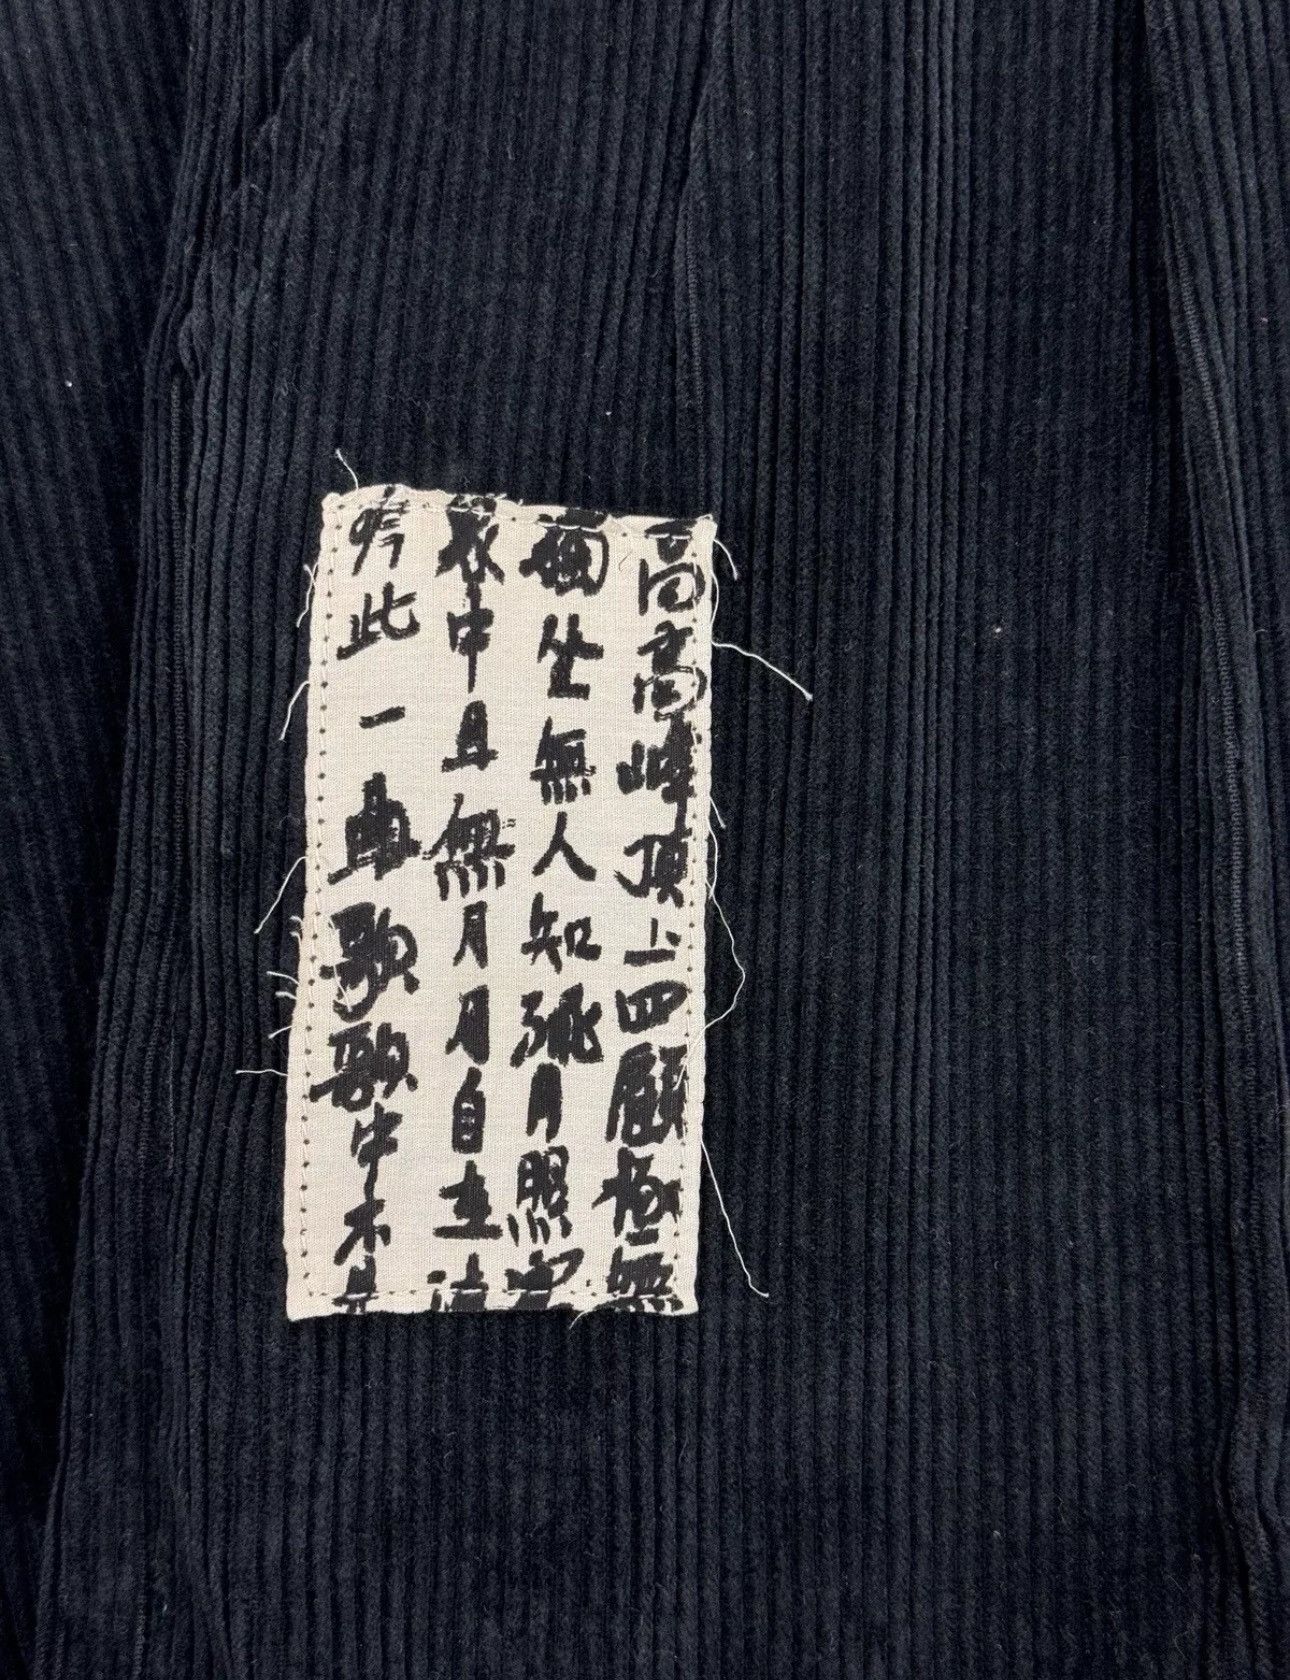 高高峰頂上四顧極無
獨坐無人知孤月照寒
泉中且無月月自
吟此一曲歌歌中不